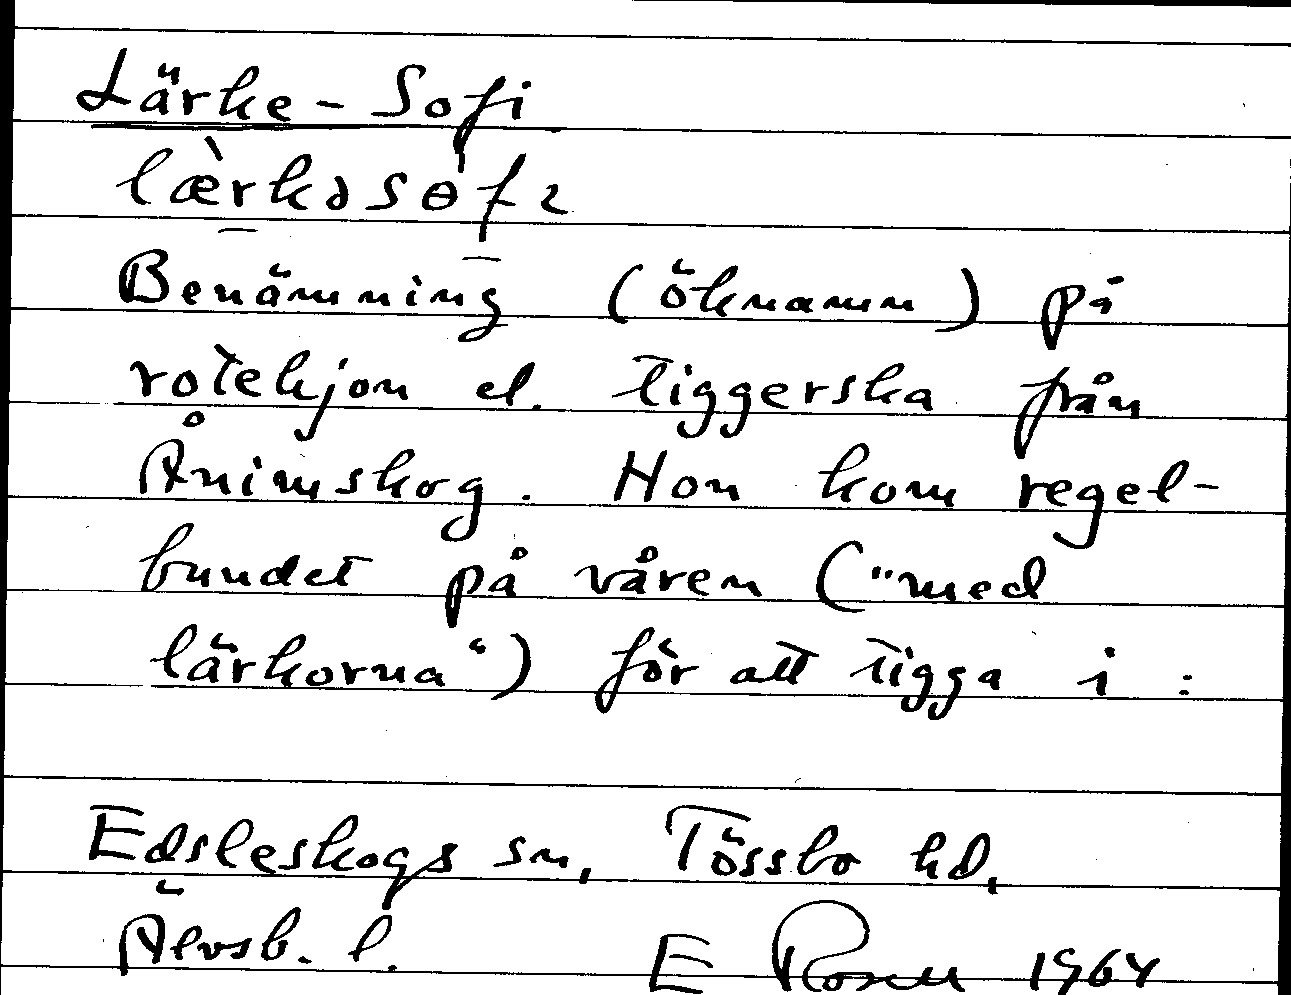 Lärke-Sofi
lærkəsɵfɩ
Benämning (öknamn) på
rotehjon el. tiggerska från
Ånimskog. Hon kom regel-
bundet på våren ("med
lärkorna") för att tigga i:
Edsleskogs sn, Tössbo hd,
Älvsb. l.  E Rosell 1964